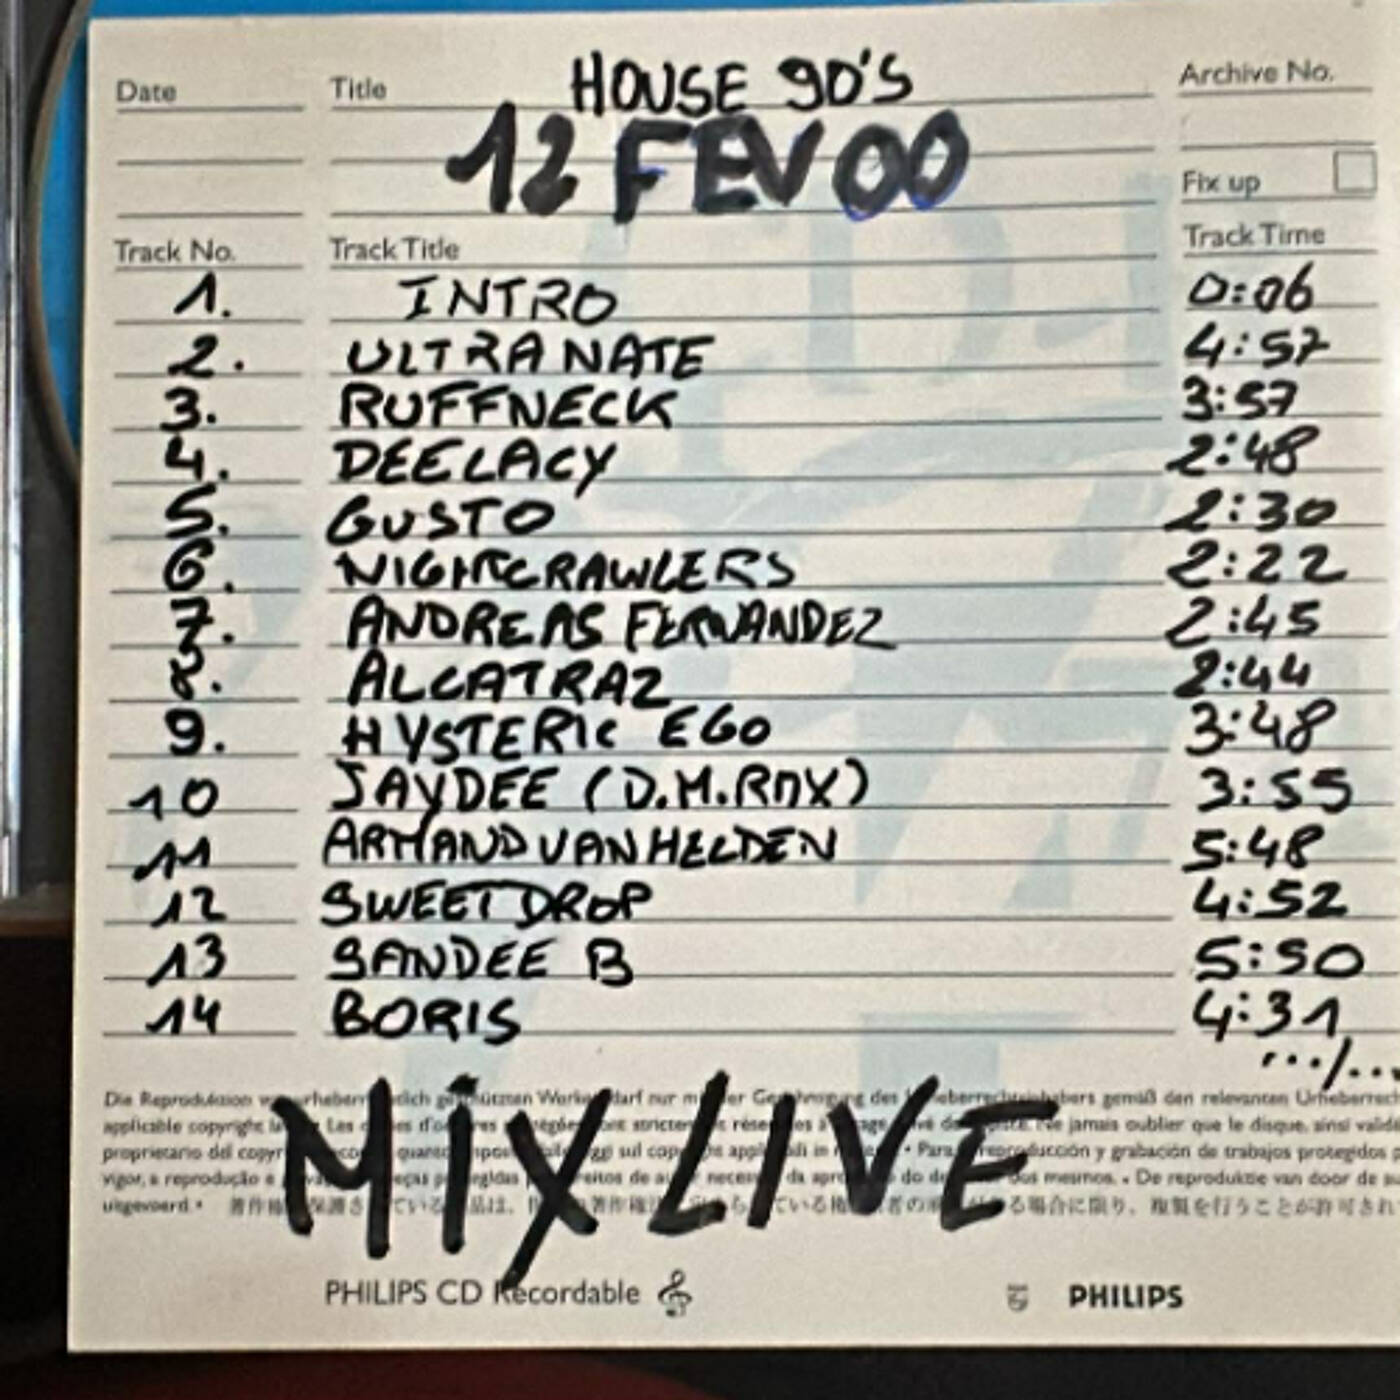 Date Title HOUSE 90'S Archive No.
12 FEV 00
Fix up
Track No. Track Title Track Time
1. INTRO 0:06
2. ULTRA NATE 4:57
3. RUFFNECK 3:57
4. DEELACY 2:48
5. GUSTO 2:30
6. NIGHTCRAWLERS 2:22
7. ANDREAS FERNANDEZ 2:45
8. ALCATRAZ 2:44
9. HYSTERIC EGO 3:48
10 JAYDEE (D.M.RMX) 3:55
11 ARMAND VAN HELDEN 5:48
12 SWEET DROP 4:52
13 SANDEE B 5:50
14 BORIS 4:31
.../...
Die Reproduktion darf nur der des gemäß den relevanten
applicable copyright Les jamais oublier que le disque, ainsi
proprietario del sul Para reproducción y grabación de trabajos protegidos
vigor, a reprodução e do mesmos. • De reproduktie van door de
uitgevoerd. • 著作権 保護さ ている る場合に限り、複製を行うことが許可され
MIX LIVE
PHILIPS CD Recordable PHILIPS